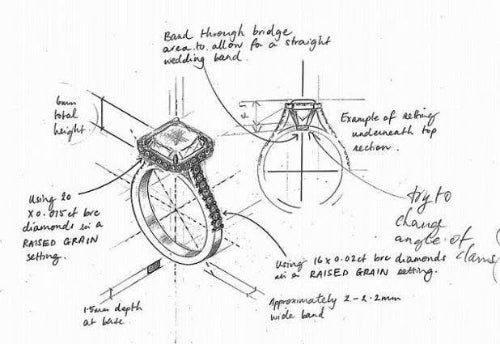 Band through bridge
area to allow for a straight
wedding band.
6mm
total
height
Example of setting
underneath top
section.
Using 20
x 0.015ct brc
diamonds in a
RAISED GRAIN
setting.
try to
change
angle of
claws
Using 16 x 0.02ct brc diamonds
in a RAISED GRAIN setting.
1.5mm depth
at base
Approximately 2-2.2mm
wide band